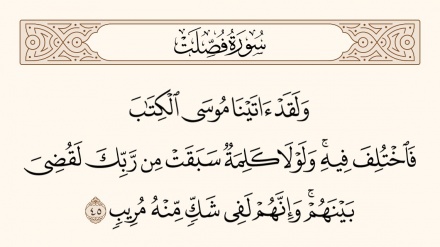 سُورَةُ فُصِّلَتْ
وَلَقَدْ ءَاتَيْنَا مُوسَى ٱلْكِتَٰبَ
فَٱخْتُلِفَ فِيهِۚ وَلَوْلَا كَلِمَةٌ سَبَقَتْ مِن رَّبِّكَ لَقُضِىَ
بَيْنَهُمْۚ وَإِنَّهُمْ لَفِى شَكٍّ مِّنْهُ مُرِيبٍ ٤٥